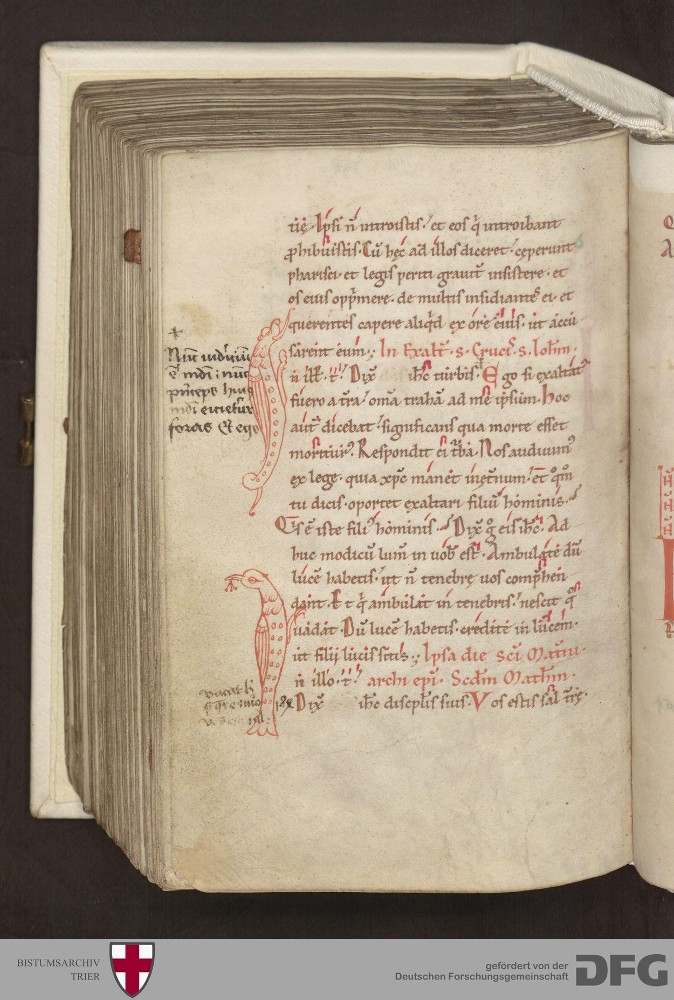 tię. Ipsi n̄ introistis. et eos q̇ introibant
prohibuistis. Cū hęc ad illos diceret. ceperunt
pharisei. et legis periti grauit̄ insistere. et
os eius opp̄mere. de multis insidiantes ei. et
querentes capere aliq̇d ex ore eius. ut accu
sarent eum.; In Exalt̄. s. Crucis. s. Ioh̄m.
n̄ ill̄. t̄. Dix̄ ih̄c turbis. Ego si exaltat᷒
fuero a t̄ra. om̄a trahā ad me ipsum. Hoc
aut̄ dicebat. significans qua morte esset
moritur᷒. Respondit ei t̄ba. Nos audiuim᷒
ex lege. quia xp̄c manet inęt̄num. et q̊m̊
tu dicis. oportet exaltari filiū hominis.
Q̇s ē iste fili᷒ hominis. Dix̄ g̊ eis ih̄c. Ad
huc modicū lum̄ in uob̄ est. Ambulate dū
lucē habetis. ut n̄ tenebrę uos comp̄hen
dant. Et q̇ ambulat in tenebris. nescit q̊
uadat. Dū lucē habetis. credite in lucem.
ut filii lucis sitis.; Ipsa die sc̄i Mat̄ni.
n̄ illo. t̄. archi ep̄i. Scdm̄ Math̄m.
Dix̄ ih̄c discipl̄is suis. Vos estis sal t̄rę.
Nunc iudiciū
ē mdi. nunc
p̄nceps huius
mdi eicietur
foras Et ego
BISTUMSARCHIV
TRIER
gefördert von der
Deutschen Forschungsgemeinschaft
DFG